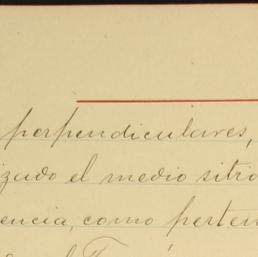 perpendiculares,
izado el medio sitio
encia, como perten